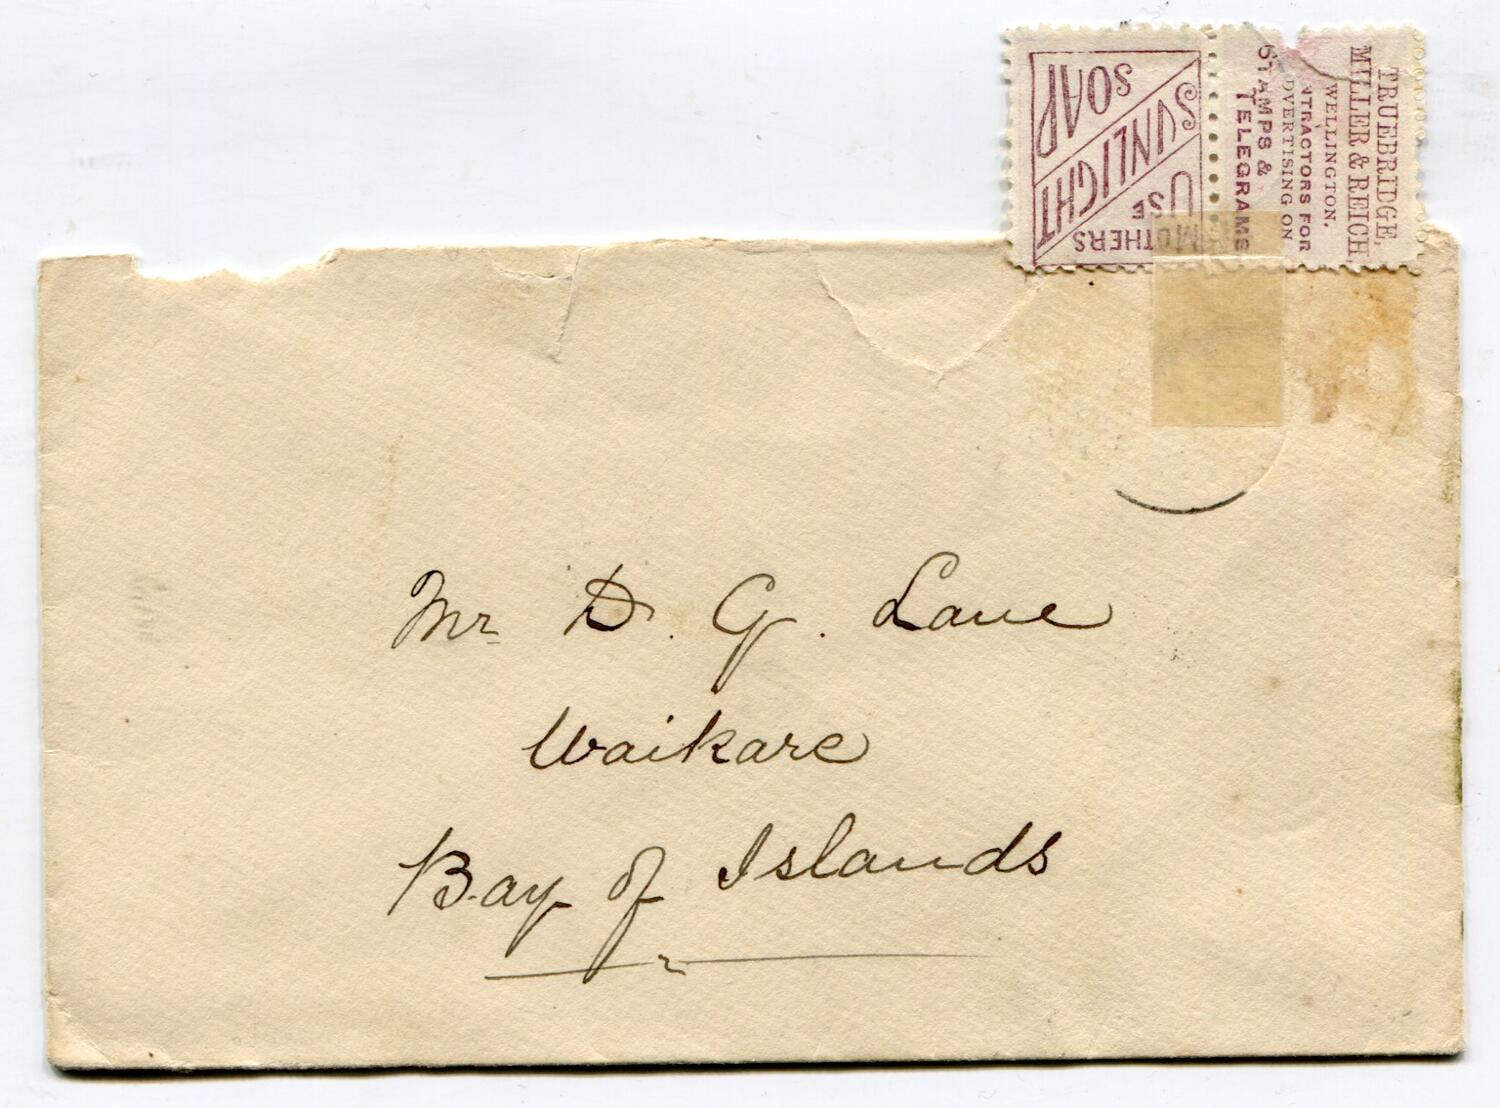 SUNLIGHT
SOAP
MOTHERS
USE
TRUEBRIDGE,
MILLER & REICH
WELLINGTON.
NTRACTORS FOR
DVERTISING ON
STAMPS &
TELEGRAMS
Mr D. G. Lane
Waikare
Bay of Islands